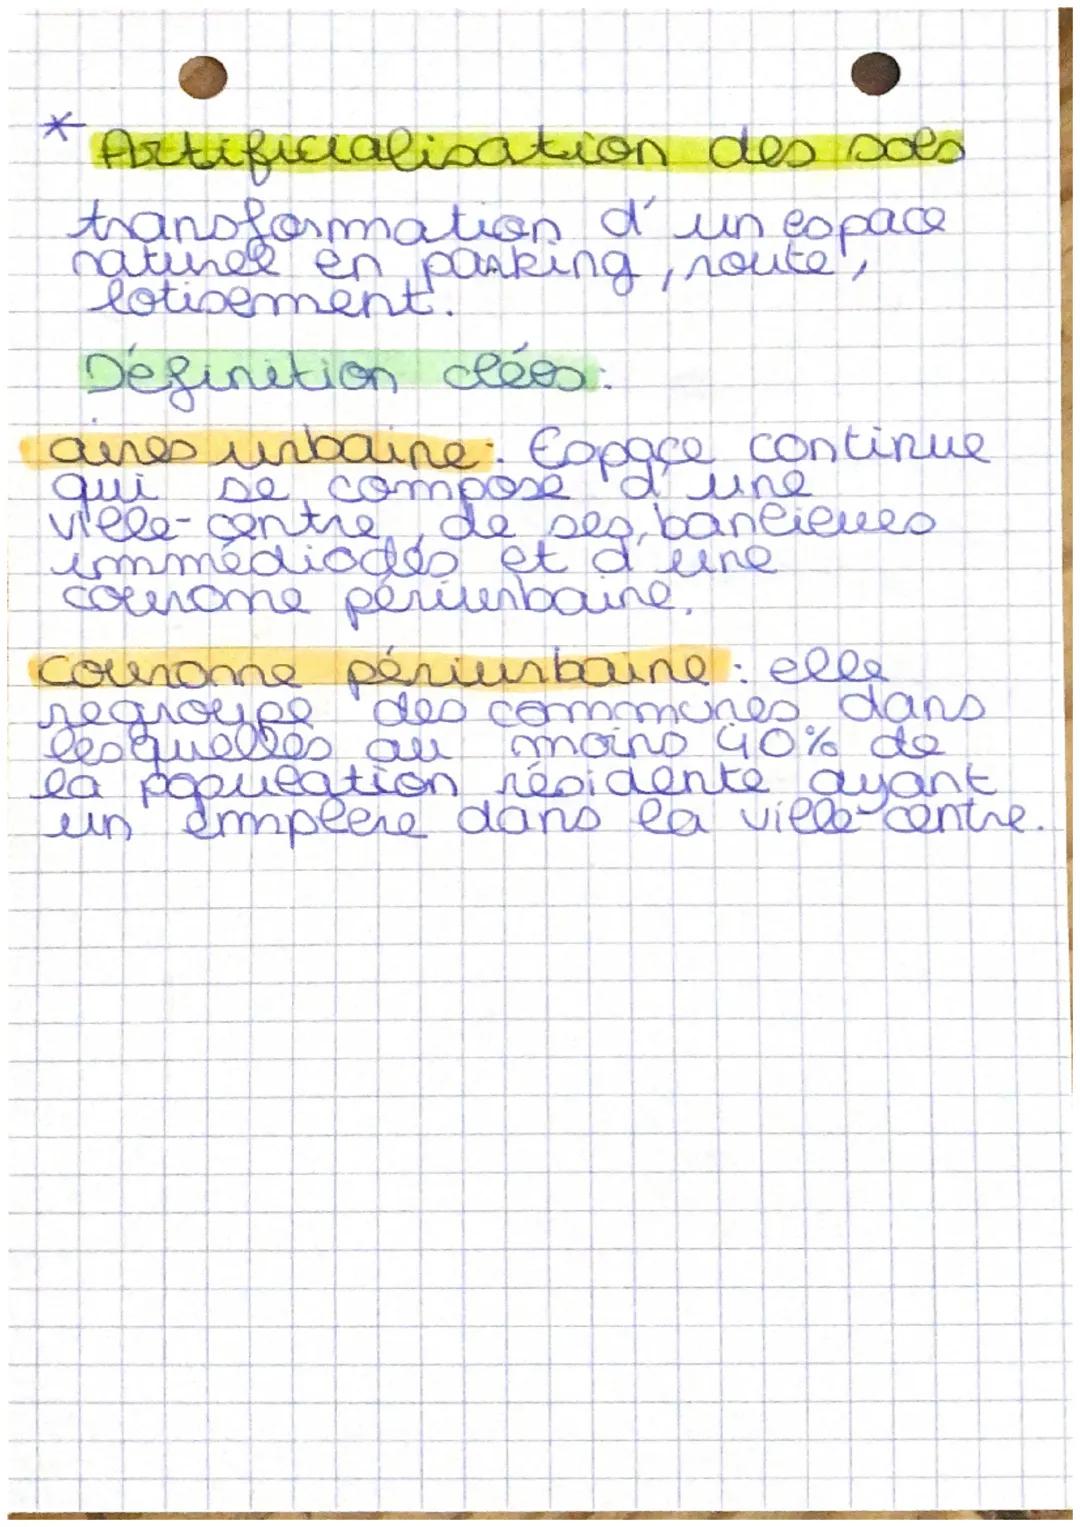 * Artificialisation des sols
transformation d'un espace
naturel en parking, route,
lotisement.
Définition clées:
aires urbaine: Espace continue
qui se compose d'une
ville-centre, de ses banlieues
immédiades et d'une
couronne périurbaine.
couronne périurbaine: elle
regroupe des communes dans
lesquelles au moins 40% de
la population résidente ayant
un empleie dans la ville-centre.